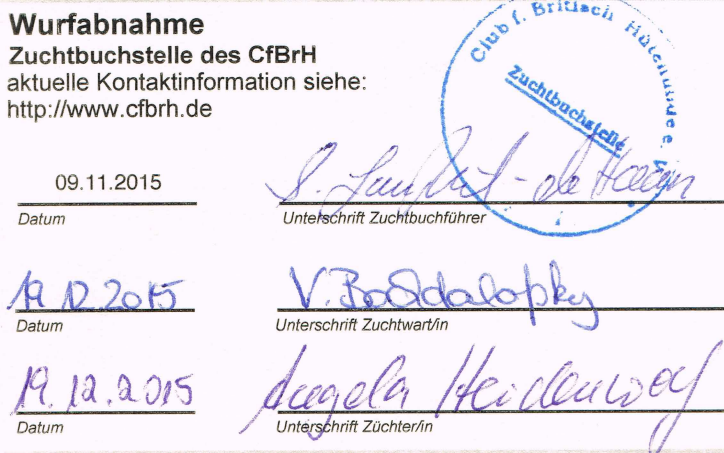 Wurfabnahme
Zuchtbuchstelle des CfBrH
aktuelle Kontaktinformation siehe:
http://www.cfbrh.de
Club f. Britisch Hütehunde e. V.
Zuchtbuchstelle
09.11.2015
Datum
Unterschrift Zuchtbuchführer
19.12.2015
Datum
Unterschrift Zuchtwart/in
19.12.2015 Angela
Datum
Unterschrift Züchter/in